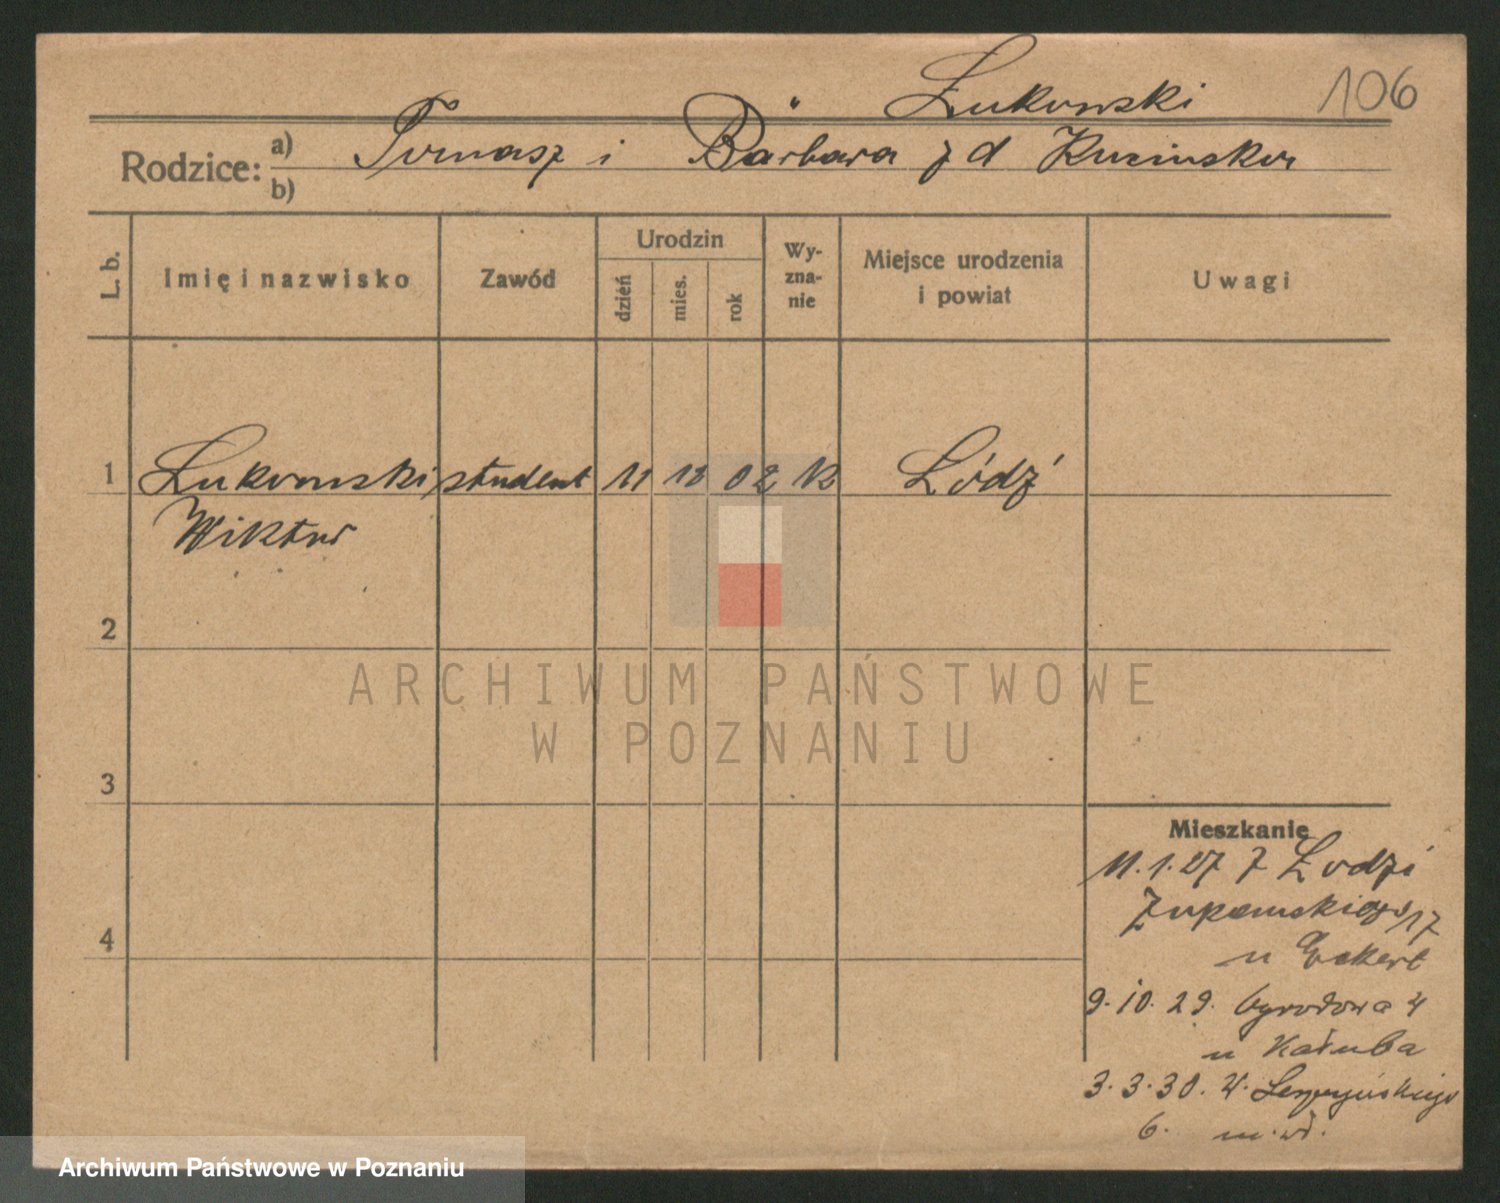 Łukowski 106
Rodzice: a) Tomasz i Barbara z d Kuzinskor
b)
L. b.
Imię i nazwisko
Zawód
Urodzin
dzień
mies.
rok
Wy-
zna-
nie
Miejsce urodzenia
i powiat
Uwagi
1 Łukowski student 11 12 02 Łódź
Wiktor
2
3
4
Mieszkanie
11.1.27 z Łodzi
Żupańskiego 17
u Eckert
9.10.29. Ogrodowa 4
u Kałuba
3.3.30.
6.
ARCHIWUM PAŃSTWOWE
W POZNANIU
Archiwum Państwowe w Poznaniu